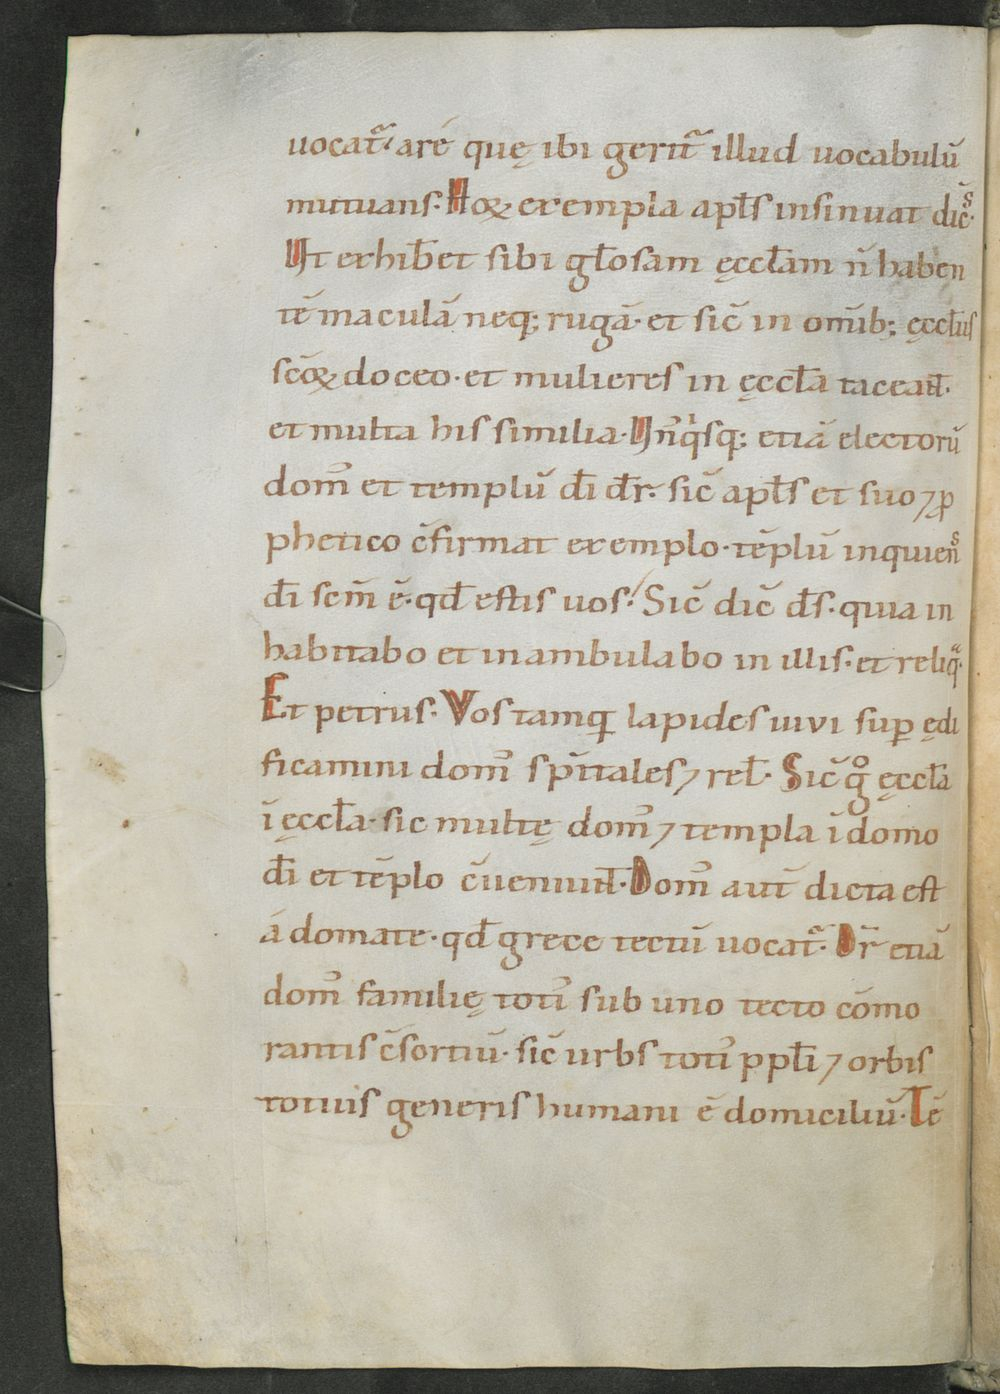 uocat᷑· a re quę ibi gerit᷑ illud uocabulū
mutuans. Hoꝝ exempla apl̄s insinuat dic̄s.
Ut exhib&et sibi gl̄osam ęccl̄am n̄ haben
tē maculā neq; rugā· et sic̄ in om̄ib; ęccl̄iis
sc̄oꝝ doceo· et mulieres in ęccl̄a taceant̄·
et multa his similia. Un̄q'sq; etiā electorū
dom᷒ et templū dī dr̄· sic̄ apl̄s et suo ⁊ ꝓ
phetico c̄firmat exemplo· tēplū inquiens
dī sc̄m ē· qd̄ estis uos. Sic̄ dic̄ ds̄· quia in
habitabo et inambulabo in illis· et reliqᵃ·
Et petrus. Vos tamq̄ lapides uiui suꝑ ędi
ficamini dom᷒ sp̄itales ⁊ rel̄. Sic̄ gͦ ęccl̄a
ī ęccl̄a· sic multę dom᷒ ⁊ templa ī domo
dī et tēplo c̄ueniunt̄. Dom᷒ aut̄ dicta est
á domate· qd̄ grece tectū uocat᷑. Dr̄ etiā
dom᷒ familię toti᷒ sub uno tecto cōmo
rantis c̄sortiū· sic̄ urbs toti᷒ ppl̄i ⁊ orbis
totius generis humani ē domiciliū. Tē